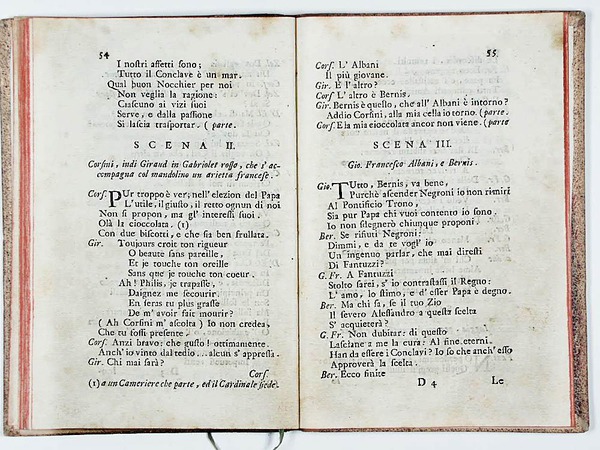 54
I nostri affetti sono;
Tutto il Conclave è un mar.
Qual buon Nocchier per noi
Non veglia la ragione:
Ciascuno ai vizi suoi
Serve, e dalla passione
Si lascia trasportar. ( parte.
SCENA II.
Corsini, indi Giraud in Gabriolet rosso, che s' ac-
compagna col mandolino un arietta francese.
Cors. PUr troppo è ver; nell' elezion del Papa
L' utile, il giusto, il retto ognun di noi
Non si propon, ma gl' interessi suoi.
Olà la cioccolata, (1)
Con due biscotti, e che sia ben frullata.
Gir. Toujours croit ton rigueur
O beaute sans pareille,
Et je touche ton oreille
Sans que je touche ton coeur.
Ah! Philis, je trapasse,
Daignez me secourir.
En seras tu plus grasse
De m' avoir fait mourir?
( Ah Corsini m' ascolta ) Io non credea,
Che tu fossi presente.
Cors. Anzi bravo: che gusto! ottimamente.
Anch' io vinto dal tedio ... alcun s' appressa.
Gir. Chi mai sarà?
Cors.
(1) a un Cameriere che parte, ed il Cardinale siede.
55
Cors. L' Albani
Il più giovane.
Gir. E l' altro?
Cors L' altro è Bernis.
Gir. Bernis è quello, che all' Albani è intorno?
Addio Corsini, alla mia cella io torno. (parte.
Cors. E la mia cioccolata ancor non viene. (parte
SCENA III.
Gio. Francesco Albani, e Bernis.
Gio. TUtto, Bernis, va bene,
Purchè ascender Negroni io non rimiri
Al Pontificio Trono,
Sia pur Papa chi vuoi contento io sono.
Io non sdegnerò chiunque proponi.
Ber. Se rifiuti Negroni:
Dimmi, e da te vogl' io
Un ingenuo parlar, che mai diresti
Di Fantuzzi?
G. Fr. A Fantuzzi
Stolto sarei, s' io contrastassi il Regno:
L' amo, lo stimo, e d' esser Papa è degno.
Ber. Ma chi sa, se il tuo Zio
Il severo Alessandro a questa scelta
S' acquieterà?
G. Fr. Non dubitar: di questo
Lasciane a me la cura: Al fine, eterni
Han da essere i Conclavi? Io so che anch' esso
Approverà la scelta.
Ber. Ecco finite
D 4
Le